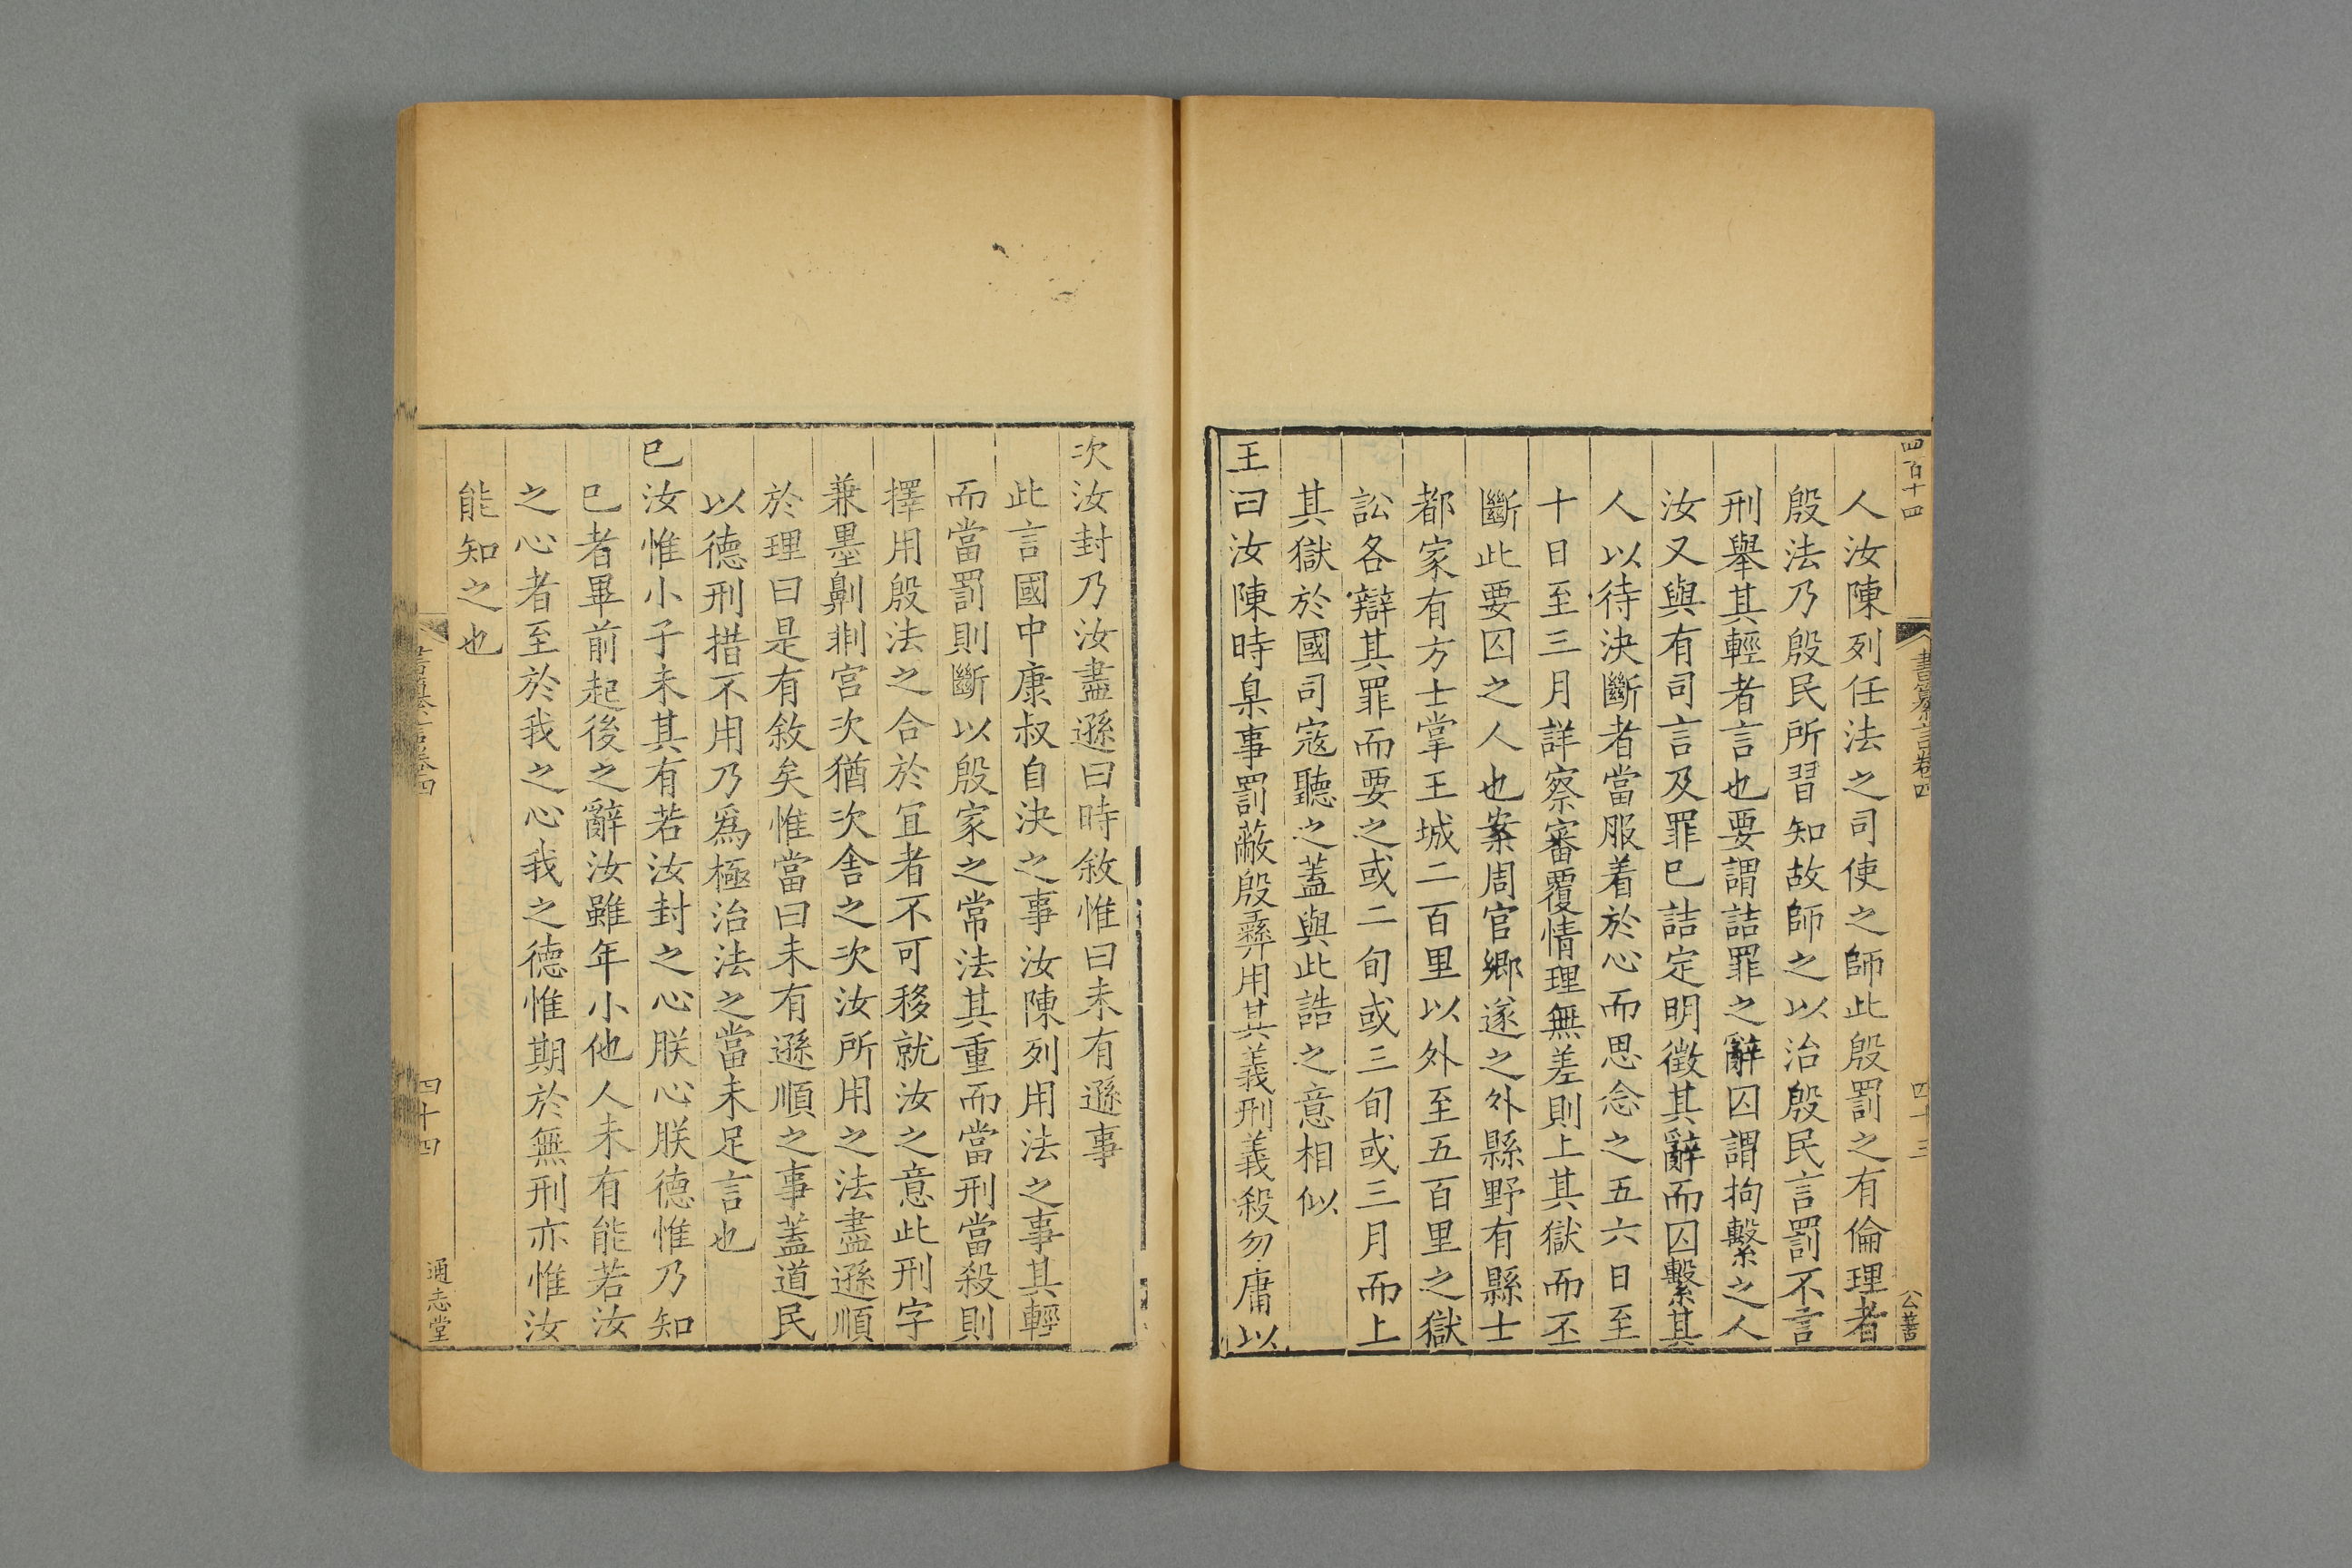 四百十四
書纂言卷四
四十三
公善
人汝陳列任法之司使之師此殷罰之有倫理者
殷法乃殷民所習知故師之以治殷民言罰不言
刑舉其輕者言也要謂詰罪之辭囚謂拘繫之人
汝又與有司言及罪已詰定明徵其辭而囚繫其
人以待決斷者當服着於心而思念之五六日至
十日至三月詳察審覆情理無差則上其獄而丕
斷此要囚之人也案周官鄉遂之外縣野有縣士
都家有方士掌王城二百里以外至五百里之獄
訟各辯其罪而要之或二旬或三旬或三月而上
其獄於國司寇聽之蓋與此誥之意相似
王曰汝陳時臬事罰蔽殷彝用其義刑義殺勿庸以
次汝封乃汝盡遜曰時敘惟曰未有遜事
此言國中康叔自決之事汝陳列用法之事其輕
而當罰則斷以殷家之常法其重而當刑當殺則
擇用殷法之合於宜者不可移就汝之意此刑字
兼墨劓剕宮次猶次舍之次汝所用之法盡遜順
於理曰是有敘矣惟當曰未有遜順之事蓋道民
以德刑措不用乃爲極治法之當未足言也
已汝惟小子未其有若汝封之心朕心朕德惟乃知
已者畢前起後之辭汝雖年小他人未有能若汝
之心者至於我之心我之德惟期於無刑亦惟汝
能知之也
四十四
通志堂